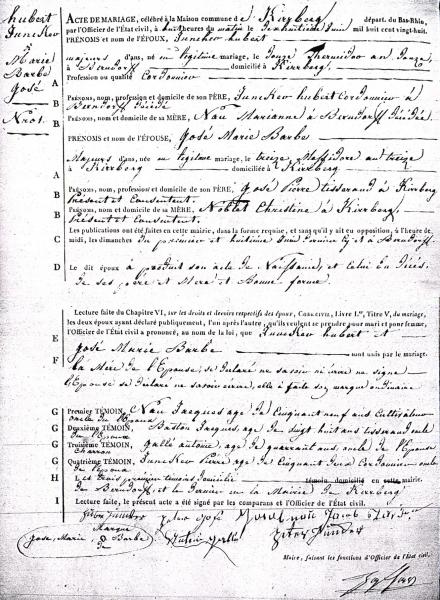 hubert
Junckew
&
Marie
Barbe
José
N.º
ACTE DE MARIAGE, célébré à la Maison commune de Kirrberg départ. du Bas-Rhin,
par l'Officier de l'État civil, à huit heures du matin le dixhuitième Juin mil huit cent vingt-huit.
PRÉNOMS et NOM de l'ÉPOUX, Junckew hubert
A majeurs d'ans, né en légitime mariage, le douze Thermidor an douze,
à Berndorff domicilié à Kirrberg.
Profession ou qualité Cordonnier
B PRÉNOMS, NOM, profession et domicile de son PÈRE, Junckew hubert Cordonnier à
Berndorff Décédé
B PRÉNOMS, NOM et domicile de sa MÈRE, Nau Marianne à Berndorff Décédée.
PRÉNOMS et NOM de l'ÉPOUSE, José Marie Barbe
A Majeurs d'ans, née en légitime mariage, le treize Messidore an treize
à Kirrberg domiciliée à Kirrberg.
B PRÉNOMS, NOM, profession et domicile de son PÈRE, José Pierre tisserand à Kirrberg
Présent et Consentent.
B PRÉNOMS, NOM et domicile de sa MÈRE, Noblet Christine à Kirrberg,
Présente et Consentent.
C Les publications ont été faites en cette mairie, dans la forme requise, et sans qu'il y ait eu opposition, à l'heure de
midi, les dimanches du premier et huitième Juin dernier ici et à Berndorff
D Le dit époux a produit son acte de Naissance, et celui en Décés
de ses père et Mère et Bonne forme.
Lecture faite du Chapitre VI, sur les droits et devoirs respectifs des époux, CODE CIVIL, Livre I.er, Titre V, du mariage,
les deux époux ayant déclaré publiquement, l'un après l'autre, qu'ils veulent se prendre pour mari et pour femme,
E l'Officier de l'État civil a prononcé, au nom de la loi, que Junckew hubert et
José Marie Barbe sont unis par le mariage.
F la Mère de l'Epouse, se déclaré ne savoir ni écrire ne signe
l'Epouse se déclaré ne savoir écrire, elle à faite sey marque ordinaire
G Premier TÉMOIN, Nau Jacques age de Cinquant neuf ans Cultivateur
oncle de l'Epoux
G Deuxième TÉMOIN, Baston Jacques, age de vingt huit ans tisserand
de l'Epoux
G Troisième TÉMOIN, Gallé antoine, age de quarrant ans, oncle de l'Epouse
Charron
G Quatrième TÉMOIN, Junckew Pierre age de Cinquant deux Cordonnier oncle
de l'époux
H Les trois premier temoins domicilie témoin domicilié en cette mairie.
de Berndorff et le dernier en la Mairie de Kirrberg
I Lecture faite, le présent acte a été signé par les comparans et l'Officier de l'État civil.
José
Marque
José, Marie, B
de
Maire, faisant les fonctions d'Officier de l'État civil.